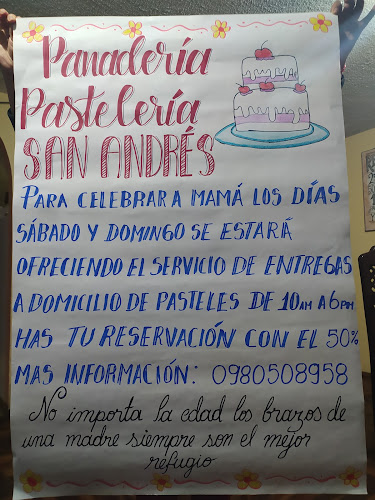 Panadería
Pastelería
SAN ANDRÉS
PARA CELEBRAR A MAMÁ LOS DÍAS
SÁBADO Y DOMINGO SE ESTARÁ
OFRECIENDO EL SERVICIO DE ENTREGAS
A DOMICILIO DE PASTELES DE 10AM A 6PM
HAS TU RESERVACIÓN CON EL 50%
MAS INFORMACIÓN: 0980508958
No importa la edad los brazos de
una madre siempre son el mejor
refugio